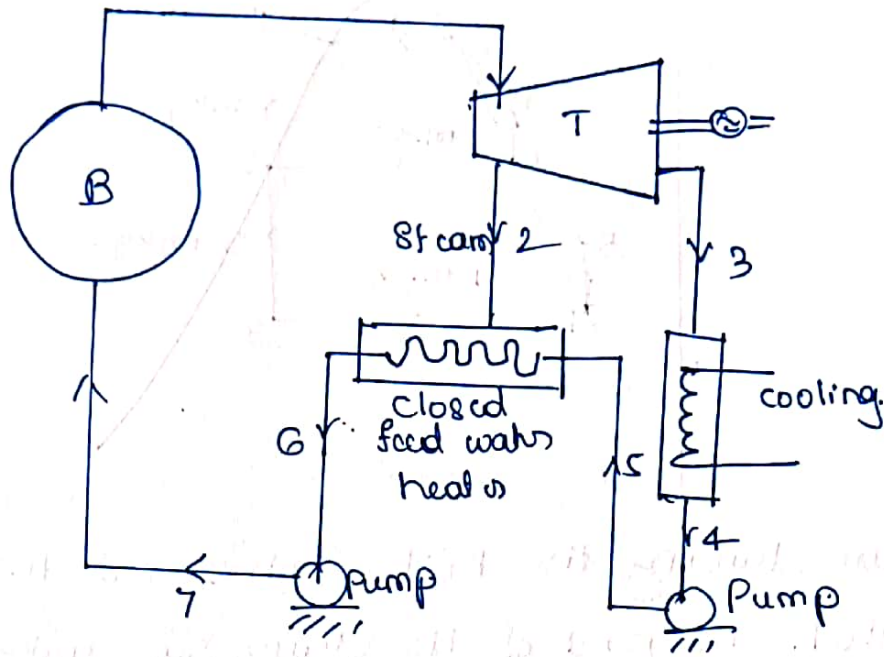 B
T
Steam 2
3
closed
feed water
heater
cooling.
6
5
4
7
Pump
Pump